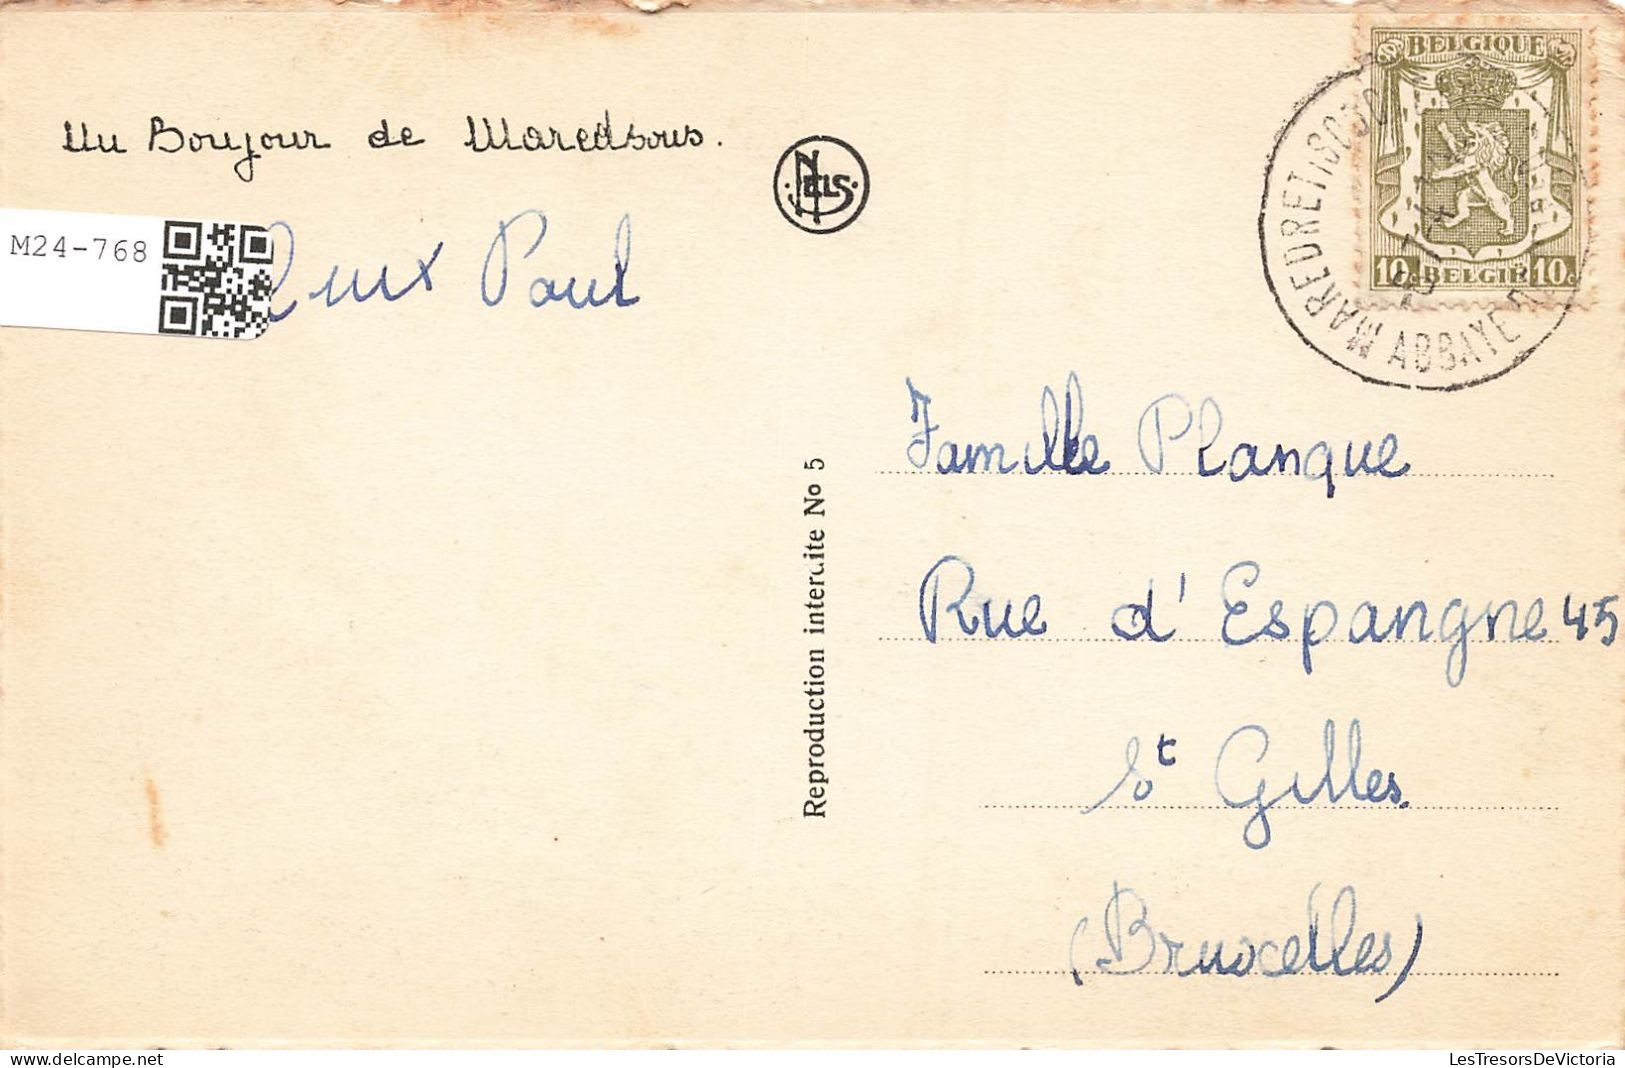 Un Bonjour de Maredsous.
M24-768
Paul
NELS
Reproduction interdite No 5
BELGIQUE
10c BELGIË 10c
MAREDRET (SOSO
ABBAYE
Famille Planque
Rue d'Espangne 45
St Gilles
(Bruxcelles)
LesTresorsDeVictoria